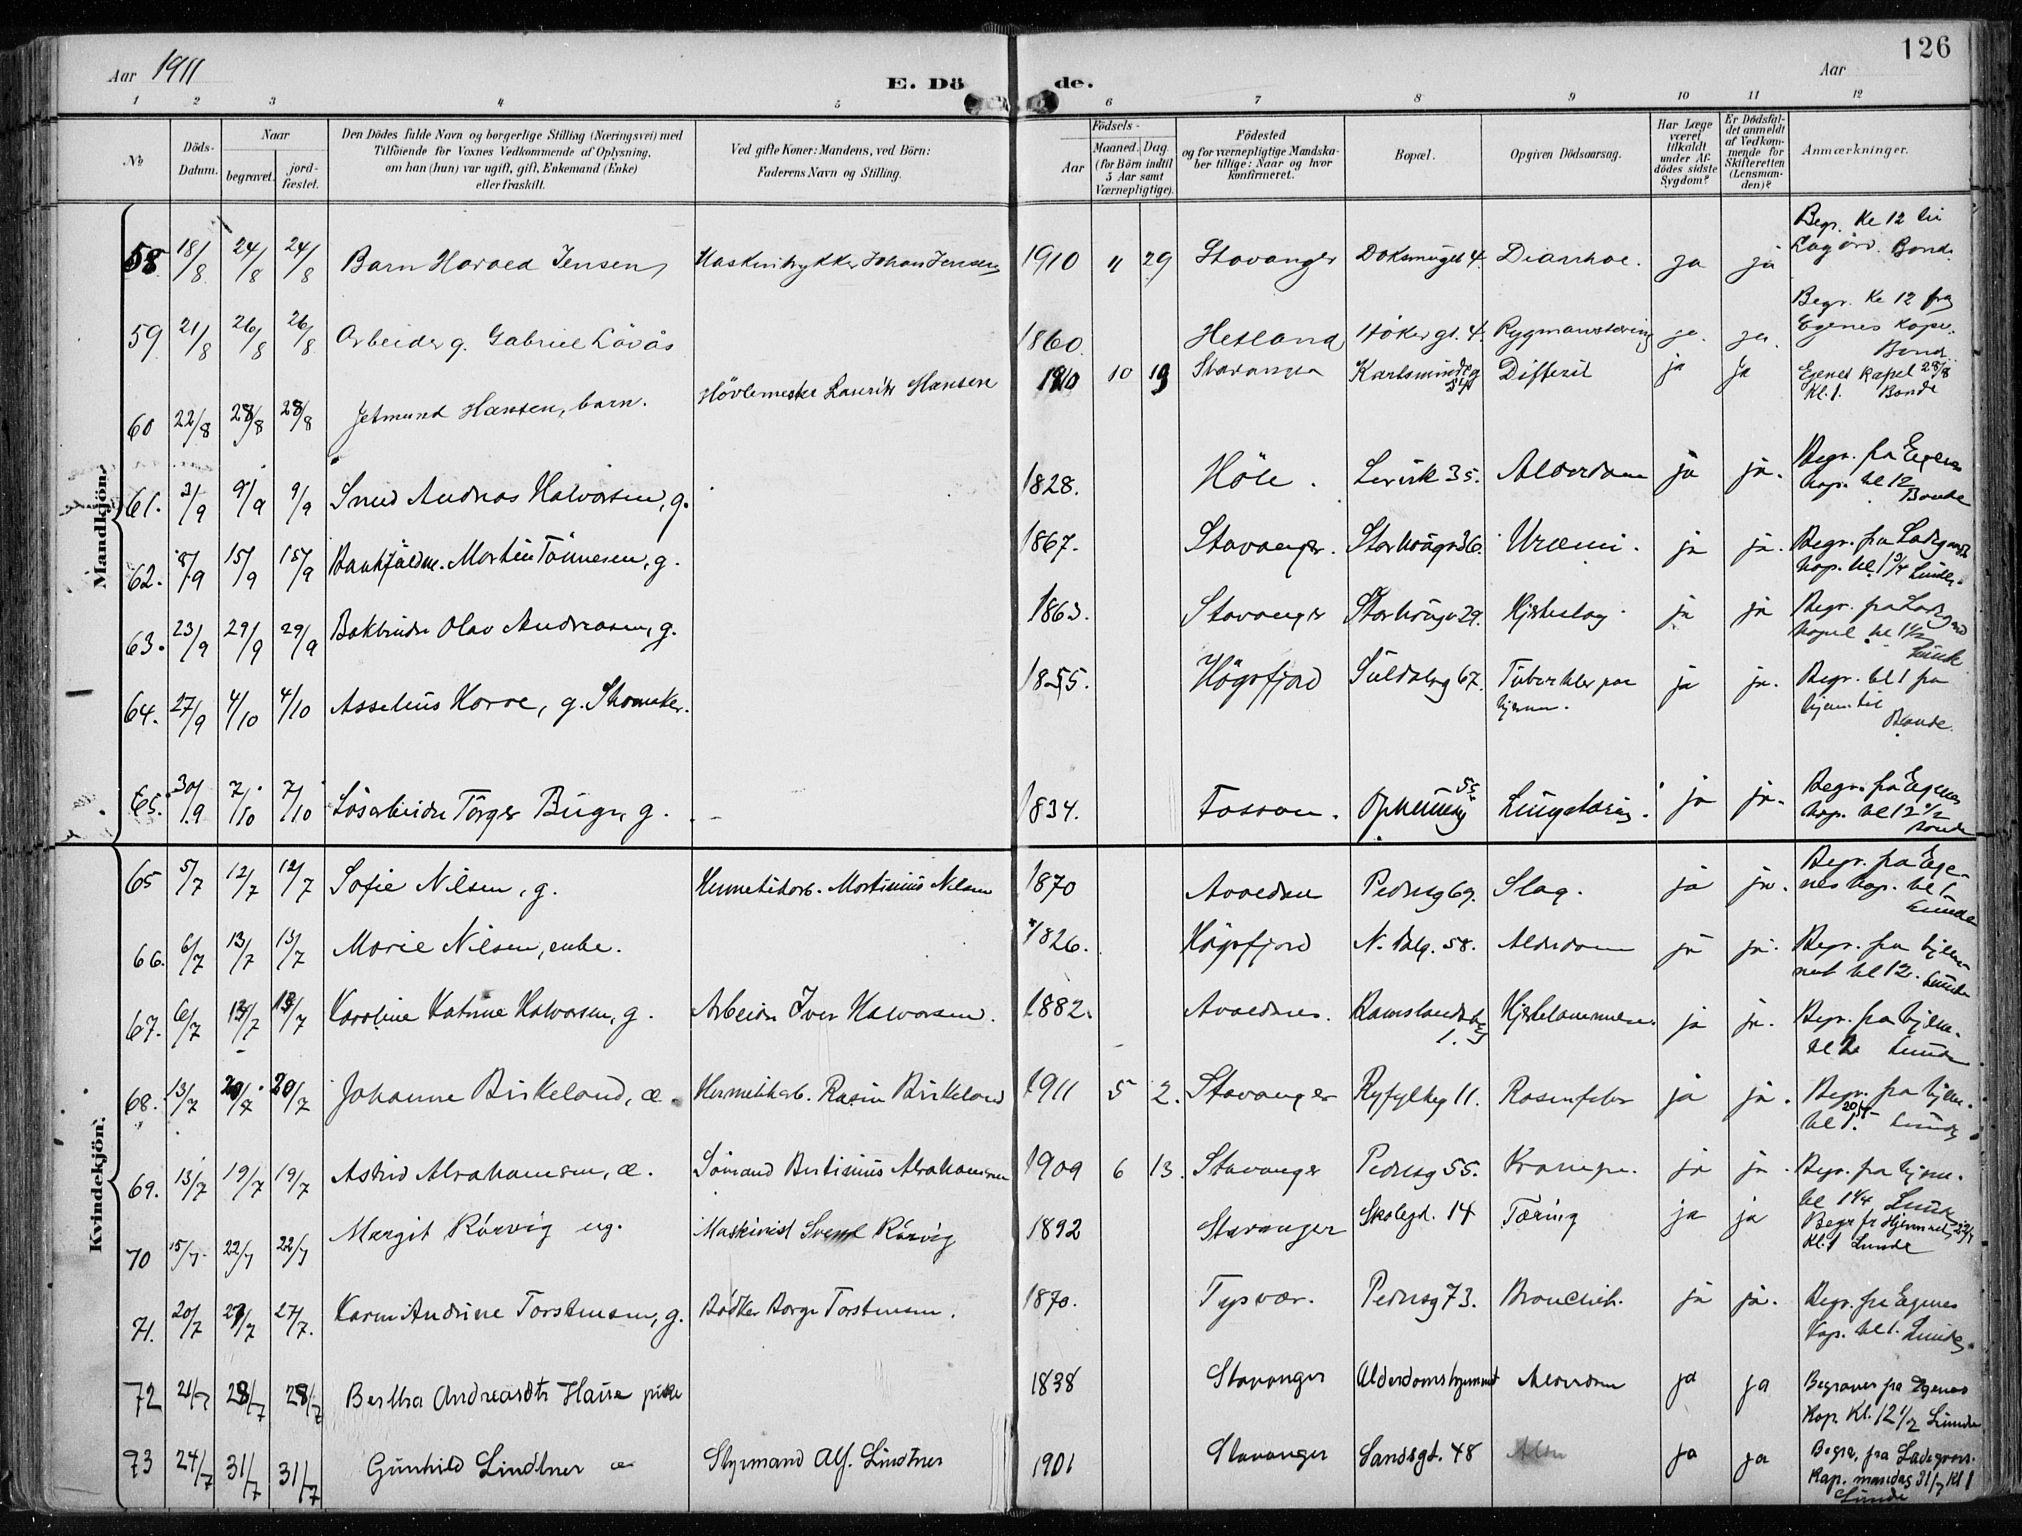 126
Aar 1911
E. Dö de.
Aar
1 2 3 4 5 6 7 8 9 10 11 12
No
Döds-Datum.
Naar
begravet.
jord-fæstet.
Den Dödes fulde Navn og borgerlige Stilling (Næringsvei) med
Tilföiende for Voxnes Vedkommende af Oplysning,
om han (hun) var ugift, gift, Enkemand (Enke)
eller fraskilt.
Ved gifte Koner: Mandens, ved Börn:
Faderens Navn og Stilling.
Födsels-
Aar
Maaned. Dag.
(for Börn indtil
5 Aar samt
Værnepligtige).
Födested
og for værnepligtige Mandska-
ber tillige: Naar og hvor
konfirmeret.
Bopæl.
Opgiven Dödsaarsag.
Har Læge
været
tilkaldt
under Af-
dödes sidste
Sygdom?
Er Dödsfal-
det anmeldt
af Vedkom-
mende for
Skifteretten
(Lensman-
den)?
Anmærkninger.
Mandkjön.
58 18/8 24/8 24/8 Barn Harald Jensen Johan Jensen 1910 11 29 Stavanger 4. Diarrhoe. ja ja Begr. Kl 12 Bonde
59 21/8 26/8 26/8 Arbeider g. Gabriel Lövås 1860 Hetland Hökergt. 4. ja ja. Begr. Kl 12 fra Egenes Kape. Bonde
60 22/8 28/8 28/8 Jetmund Hansen, barn. Hövlemester Laurits Hansen 1910 10 19 Stavanger Difterit ja ja Egenes Kapel 28/8 Kl. 1. Bonde
61. 3/9 9/9 9/9 Smed Andreas Halvorsen, g. 1828. Höle. Lervik 35. Alderdom ja ja. Begr. fra Egenes kap. kl 12 Bonde
62. 8/9 15/9 15/9 Morten Tönnesen, g. 1867. Stavanger. Storhougv 36. Uræmi. ja ja. Begr. fra kap. kl. 1 3/4 Lunde.
63. 23/9 29/9 29/9 Bokbinder Olav Andreasen, g. 1863. Stavanger Storhougv 29. Hjerteslag. ja ja Begr. fra Ladegaard kapel kl 1 1/2 Lunde
64. 27/9 4/10 4/10 Asselius Horve, g. Skomaker. 1855. Högsfjord Suldalsg 67. Tuberkler paa hjernen. ja ja. Begr. kl 1 fra hjemmet Bonde.
65. 30/9 7/10 7/10 Lösarbeider Törger g. 1834. Fossan. 55 ja ja. Begr. fra Egenes kap. kl 12 1/2 Bonde
Kvindekjön.
65 5/7 12/7 12/7 Sofie Nilsen, g. Hermetikarb. Martinius Nilsen 1870 Avaldsn Pedersg 69. Slag. ja ja. Begr. fra Ege-nes kap. kl 1. Lunde
66. 6/7 13/7 13/7 Marie Nilsen, enke. 1826. Högsfjord N. Dalg. 58. Alderdom ja ja. Begr. fra hjem-met kl 12. Lunde
67. 6/7 13/7 13/7 Karoline Katrine Halvorsen, g. Arbeider Iver Halvorsen. 1882. Avaldsnes. 1. Hjertelammelse. ja ja. Begr. fra hjem. kl 2 Lunde
68. 13/7 20/7 20/7 Johanne Birkeland, æ. Hermetikarb. Rasm Birkeland 1911 5 2. Stavanger Ryfylkeg 11. Rosenfeber ja ja. Begr. fra hjem. 20/7 kl 1. Lunde
69. 13/7 19/7 19/7 Astrid Abrahamsen, æ. Sömand Bertinius Abrahamsen 1909 6 13. Stavanger Pedersg 55. Krampe. ja ja. Begr. fra hjem. kl 1 1/4 Lunde
70 15/7 22/7 22/7 Margit Rörvig ug. Maskinist Svend Rörvig 1892 Stavanger Skolegd. 14 Tæring ja ja Begr fr Hjemmet 22/7 Kl. 1 Lunde
71. 20/7 27/7 27/7. Karen Andrine Torstensen, g. Bödker Borge Torstensen. 1870. Tysvær. Pedersg 73. Bronchit. ja ja. Begr. fra Egenes kap. kl 1. Lunde
72 21/7 28/7 28/7 Bertha Andreasdtr Haise pike 1838 Stavanger Alderdomshjemmet Alderdom ja ja Begraves fra Egenes Kap. Kl. 12 1/2 Lunde
73 24/7 31/7 31/7 Gunhild Lindtner æ Styrmand Alf. Lindtner 1901 Stavanger Sandsgt. 48 ja ja Begr. fra Ladegaars. Kap. mandag 31/7 Kl 1 Lunde